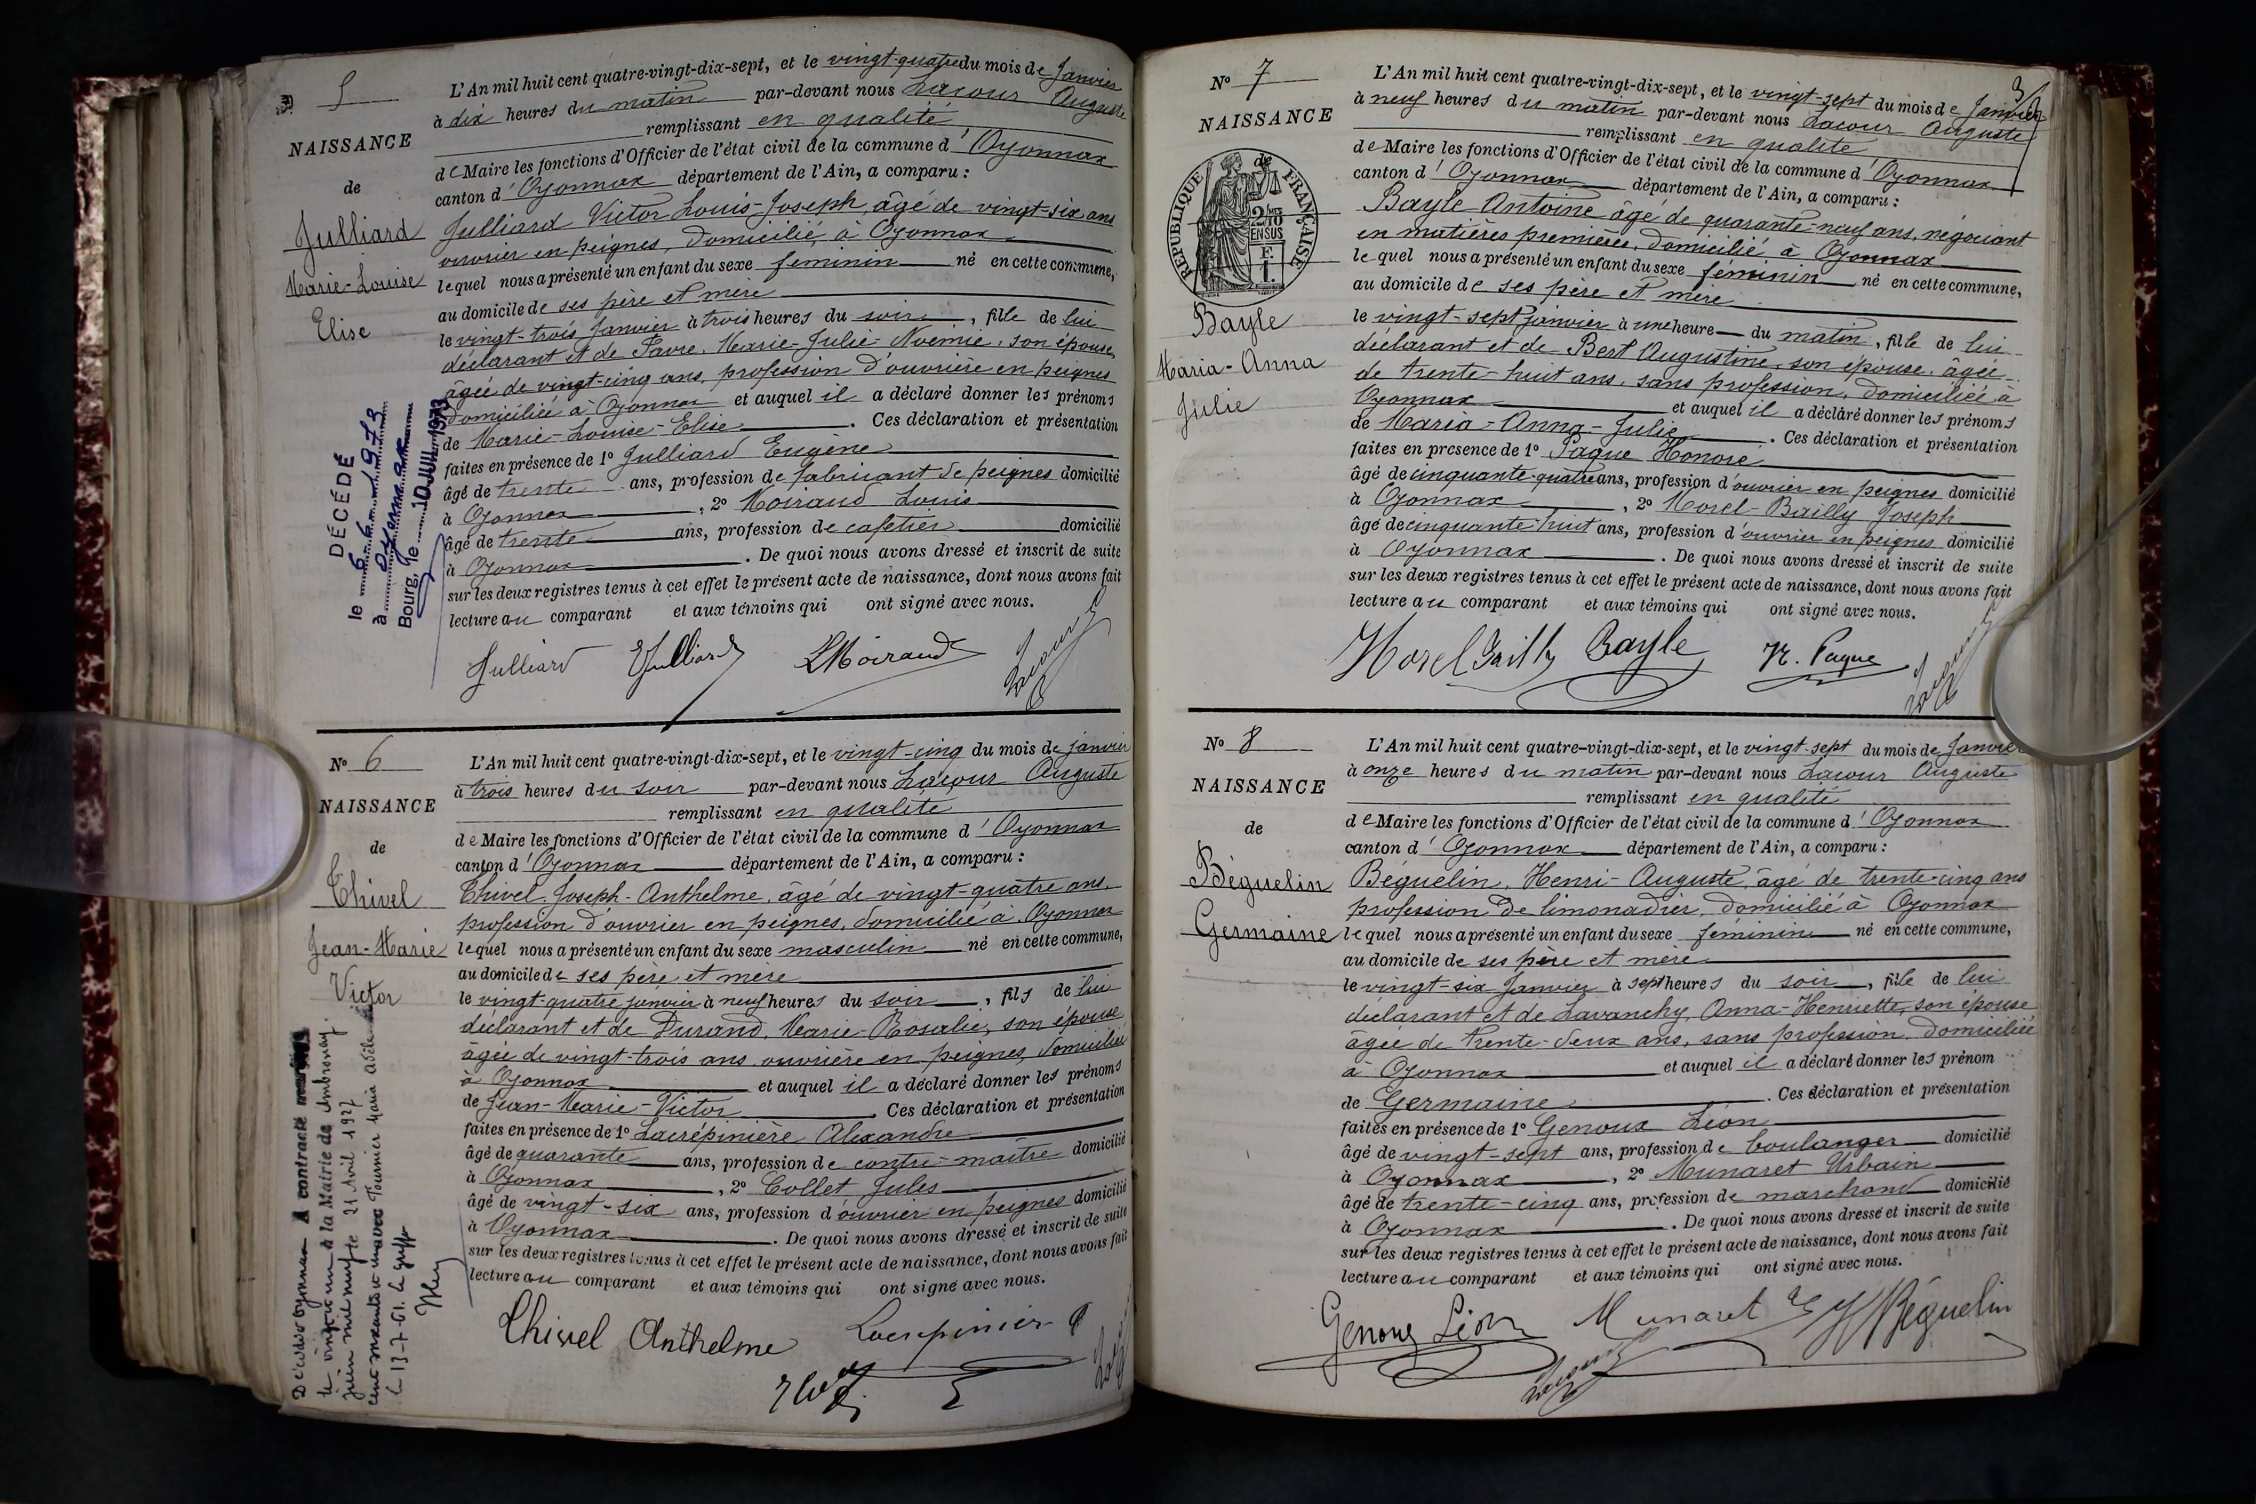 N° 5
NAISSANCE
de
Julliard
Marie-Louise
Elise
DÉCÉDÉ
le 6.6.1973
à Oyonnax
Bourg, le 10 JUIL 1973
L'An mil huit cent quatre-vingt-dix-sept, et le vingt-quatre du mois de Janvier
à dix heures du matin par-devant nous Lacour Auguste
remplissant en qualité
de Maire les fonctions d'Officier de l'état civil de la commune d'Oyonnax
canton d'Oyonnax département de l'Ain, a comparu :
Julliard Victor Louis-Joseph, âgé de vingt-six ans
ouvrier en peignes, domicilié à Oyonnax
lequel nous a présenté un enfant du sexe féminin né en cette commune,
au domicile de ses père et mère
le vingt-trois Janvier à trois heures du soir, fille de lui
déclarant et de Favre, Marie-Julie-Noémie, son épouse,
âgée de vingt-cinq ans, profession d'ouvrière en peignes
domiciliée à Oyonnax et auquel il a déclaré donner les prénoms
de Marie-Louise-Elise. Ces déclaration et présentation
faites en présence de 1° Julliard Eugène
âgé de trente ans, profession de fabricant de peignes domicilié
à Oyonnax, 2° Moiraud Louis
âgé de trente ans, profession de cafetier domicilié
à Oyonnax. De quoi nous avons dressé et inscrit de suite
sur les deux registres tenus à cet effet le présent acte de naissance, dont nous avons fait
lecture au comparant et aux témoins qui ont signé avec nous.
Julliard EJulliard LMoiraud Lacour
N° 6
NAISSANCE
de
Thivel
Jean-Marie
Victor
Décédé à Oyonnax
le 13-7-61. Le greffier
A contracté mariage
à la Mairie de Ambronay
21 Avril 1927
avec Tournier Maria Adèle
L'An mil huit cent quatre-vingt-dix-sept, et le vingt-cinq du mois de janvier
à trois heures du soir par-devant nous Lacour Auguste
remplissant en qualité
de Maire les fonctions d'Officier de l'état civil de la commune d'Oyonnax
canton d'Oyonnax département de l'Ain, a comparu :
Thivel Joseph-Anthelme, âgé de vingt-quatre ans,
profession d'ouvrier en peignes, domicilié à Oyonnax
lequel nous a présenté un enfant du sexe masculin né en cette commune,
au domicile de ses père et mère
le vingt-quatre janvier à neuf heures du soir, fils de lui
déclarant et de Durand, Marie-Rosalie, son épouse
âgée de vingt-trois ans ouvrière en peignes, domiciliée
à Oyonnax et auquel il a déclaré donner les prénoms
de Jean-Marie-Victor. Ces déclaration et présentation
faites en présence de 1° Lacrépinière Alexandre
âgé de quarante ans, profession de contre-maître domicilié
à Oyonnax, 2° Collet Jules
âgé de vingt-six ans, profession d'ouvrier en peignes domicilié
à Oyonnax. De quoi nous avons dressé et inscrit de suite
sur les deux registres tenus à cet effet le présent acte de naissance, dont nous avons fait
lecture au comparant et aux témoins qui ont signé avec nous.
Thivel Anthelme
N° 7
NAISSANCE
de
RÉPUBLIQUE FRANÇAISE
2/10 EN SUS
Bayle
Maria-Anna
Julie
3
L'An mil huit cent quatre-vingt-dix-sept, et le vingt-sept du mois de Janvier
à neuf heures du matin par-devant nous Lacour Auguste
remplissant en qualité
de Maire les fonctions d'Officier de l'état civil de la commune d'Oyonnax
canton d'Oyonnax département de l'Ain, a comparu :
Bayle Antoine âgé de quarante-neuf ans, négociant
en matières premières, domicilié à Oyonnax
lequel nous a présenté un enfant du sexe féminin né en cette commune,
au domicile de ses père et mère
le vingt-sept janvier à une heure du matin, fille de lui
déclarant et de Best Augustine, son épouse, âgée
de trente-huit ans, sans profession, domiciliée à
Oyonnax et auquel il a déclaré donner les prénoms
de Maria-Anna-Julie. Ces déclaration et présentation
faites en présence de 1° Paque Honoré
âgé de cinquante-quatre ans, profession d'ouvrier en peignes domicilié
à Oyonnax, 2° Morel-Bailly Joseph
âgé de cinquante-huit ans, profession d'ouvrier en peignes domicilié
à Oyonnax. De quoi nous avons dressé et inscrit de suite
sur les deux registres tenus à cet effet le présent acte de naissance, dont nous avons fait
lecture au comparant et aux témoins qui ont signé avec nous.
Morel Bailly Bayle H. Paque Lacour
N° 8
NAISSANCE
de
Béguelin
Germaine
L'An mil huit cent quatre-vingt-dix-sept, et le vingt-sept du mois de Janvier
à onze heures du matin par-devant nous Lacour Auguste
remplissant en qualité
de Maire les fonctions d'Officier de l'état civil de la commune d'Oyonnax
canton d'Oyonnax département de l'Ain, a comparu :
Béguelin, Henri-Auguste, âgé de trente-cinq ans
profession de limonadier, domicilié à Oyonnax
lequel nous a présenté un enfant du sexe féminin né en cette commune,
au domicile de ses père et mère
le vingt-six Janvier à sept heures du soir, fille de lui
déclarant et de Lavanchy, Anna-Henriette, son épouse
âgée de trente-deux ans, sans profession, domiciliée
à Oyonnax et auquel il a déclaré donner les prénom
de Germaine. Ces déclaration et présentation
faites en présence de 1° Genoux Léon
âgé de vingt-sept ans, profession de boulanger domicilié
à Oyonnax, 2° Munaret Urbain
âgé de trente-cinq ans, profession de marchand domicilié
à Oyonnax. De quoi nous avons dressé et inscrit de suite
sur les deux registres tenus à cet effet le présent acte de naissance, dont nous avons fait
lecture au comparant et aux témoins qui ont signé avec nous.
Genoux Léon Munaret HBéguelin
Lacour